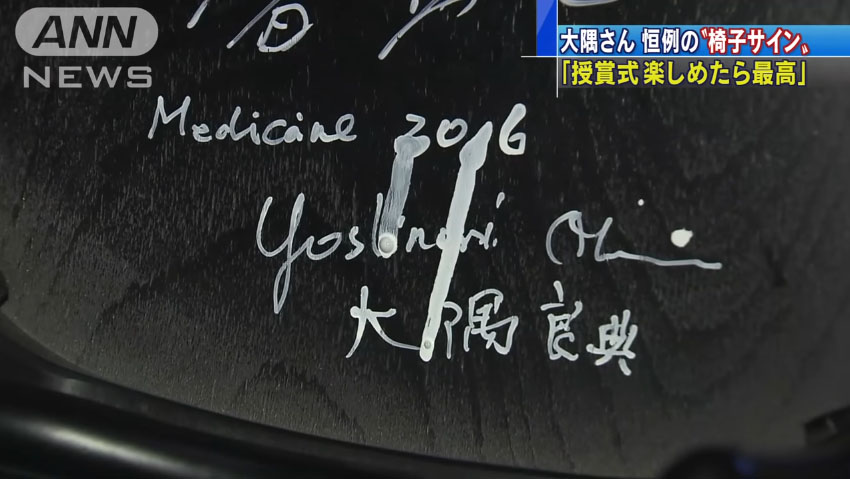 ANN
NEWS
大隅さん 恒例の〝椅子サイン〟
「授賞式 楽しめたら最高」
Medicine 2016
Yoshinori
大隅良典